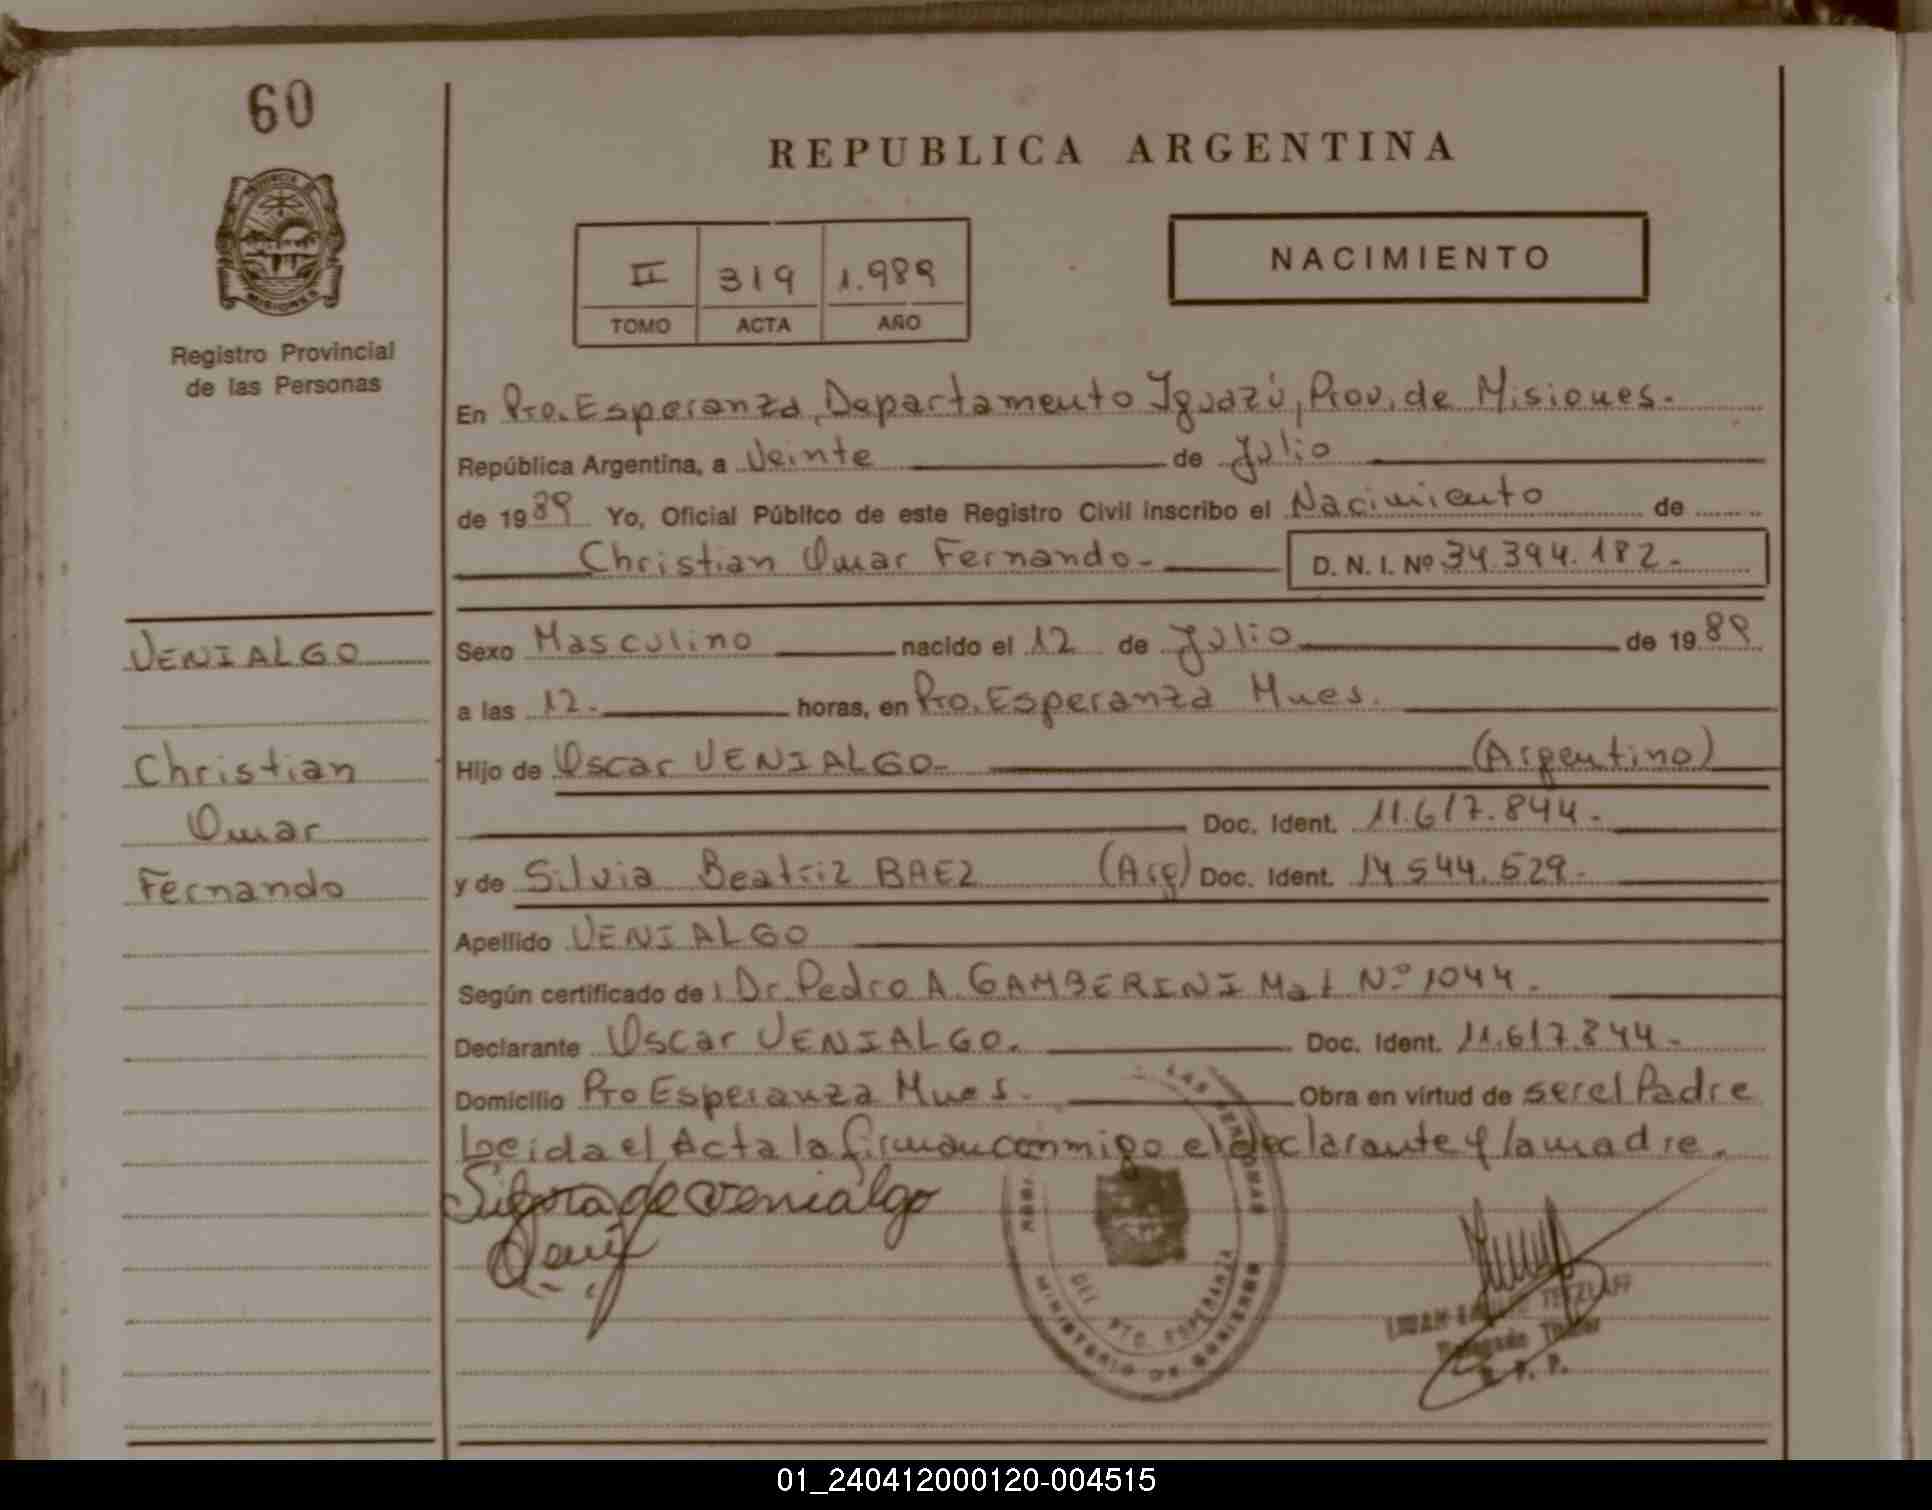 60
REPUBLICA ARGENTINA
II 319 1.989
TOMO ACTA AÑO
NACIMIENTO
MISIONES
Registro Provincial
de las Personas
En Pto. Esperanza, Departamento Iguazú, Prov. de Misiones.
República Argentina, a Veinte de Julio
de 1989 Yo, Oficial Público de este Registro Civil inscribo el Nacimiento de
Christian Omar Fernando.- D. N. I. Nº 34.394.182.-
VENIALGO
Christian
Omar
Fernando
Sexo Masculino nacido el 12 de Julio de 1989
a las 12. horas, en Pto. Esperanza Mnes.
Hijo de Oscar VENIALGO- (Argentino)
Doc. Ident. 11.617.844.-
y de Silvia Beatriz BAEZ (Arg) Doc. Ident. 14.544.529.-
Apellido VENIALGO
Según certificado de: Dr. Pedro A. GAMBERINI Mat Nº 1044.
Declarante Oscar VENIALGO. Doc. Ident. 11.617.844.-
Domicilio Pto Esperanza Mnes. Obra en virtud de ser el Padre
Leida el Acta la firman conmigo el declarante y la madre.
de Venialgo
LAS PERSONAS
DEL. PTO. ESPERANZA
MINISTERIO DE GOBIERNO
TETZLAFF
Delegado Titular
R. P. P.
01_240412000120-004515